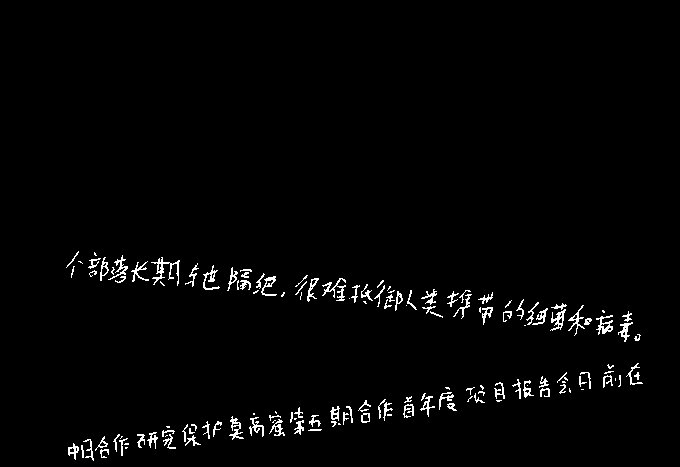 个部落长期与世隔绝，很难抵御人类携带的细菌和病毒。
中日合作研究保护莫高窟第五期合作首年度项目报告会日前在